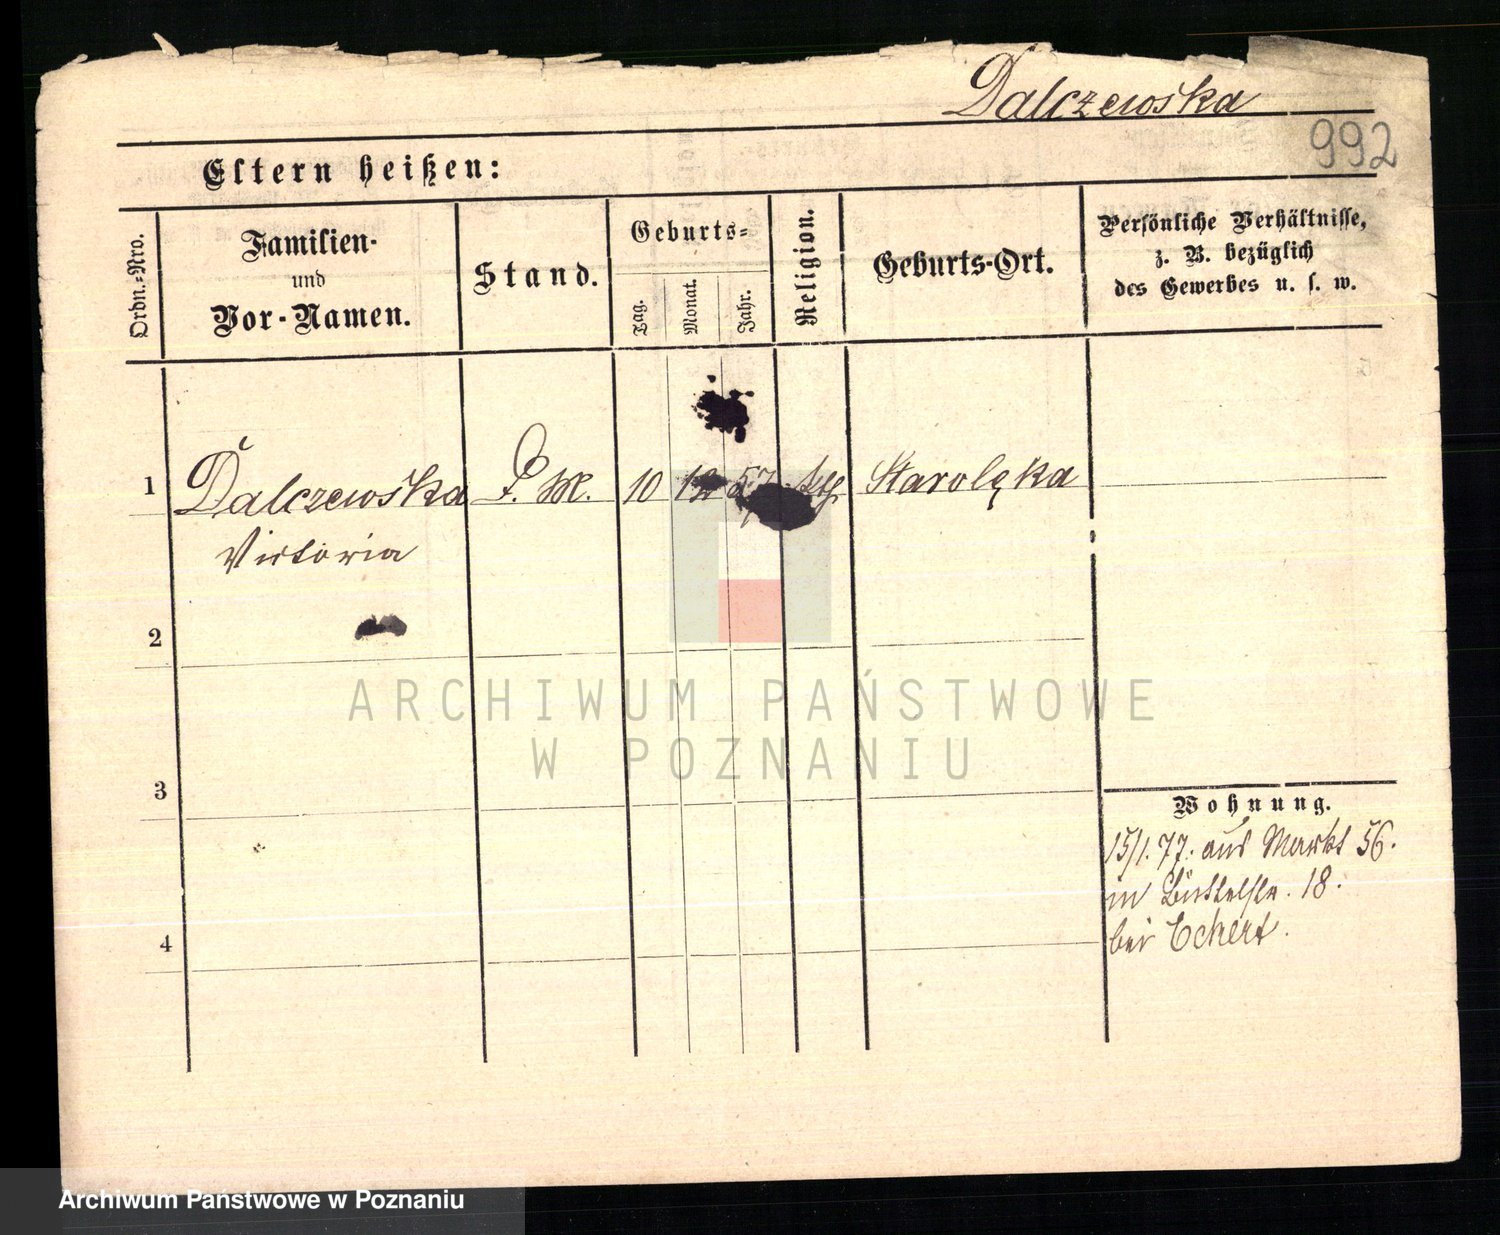 Dalczewska
992
Eltern heißen:
Ordn.-Nro.
Familien-
und
Vor-Namen.
Stand.
Geburts-
Tag.
Monat.
Jahr.
Religion.
Geburts-Ort.
Persönliche Verhältnisse,
z. B. bezüglich
des Gewerbes u. s. w.
1 Dalczewska P. M. 10 12 57 Starolęka
Victoria
2
3
4
Wohnung.
15/1. 77. aus Markt 56.
in Büttelstr. 18.
bei Eckert.
ARCHIWUM PAŃSTWOWE
W POZNANIU
Archiwum Państwowe w Poznaniu